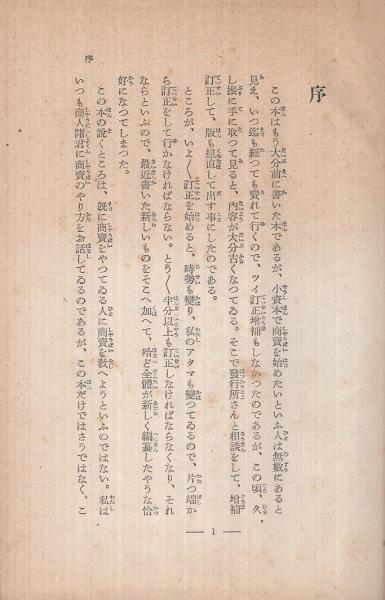 序
この本はもう大分前に書いた本であるが、小資本で商賣を始めたいといふ人は無數にあると
見え、いつ迄も經ても賣れて行くので、ツイ訂正增補もしなかつたのであるが、この頃、久
し振に手に取つて見ると、內容が大分古くなつてゐる。そこで發行所さんと相談をして、增補
訂正して、版も組直して出す事にしたのである。
ところが、いよ〳〵訂正を始めると、時勢も變り、私のアタマも變つてゐるので、片つ端か
ら訂正をして行かなければならない。とう〳〵半分以上も訂正しなければならなくなり、それ
ならといふので、最近書いた新しいものをそこへ加へて、殆ど全體が新しく編纂したやうな恰
好になつてしまつた。
この本の說くところは、旣に商賣をやつてゐる人に商賣を敎へようといふのではない。私は
いつも商人諸君に商賣のやり方をお話してゐるのであるが、この本だけではさうではなく、こ
序
1